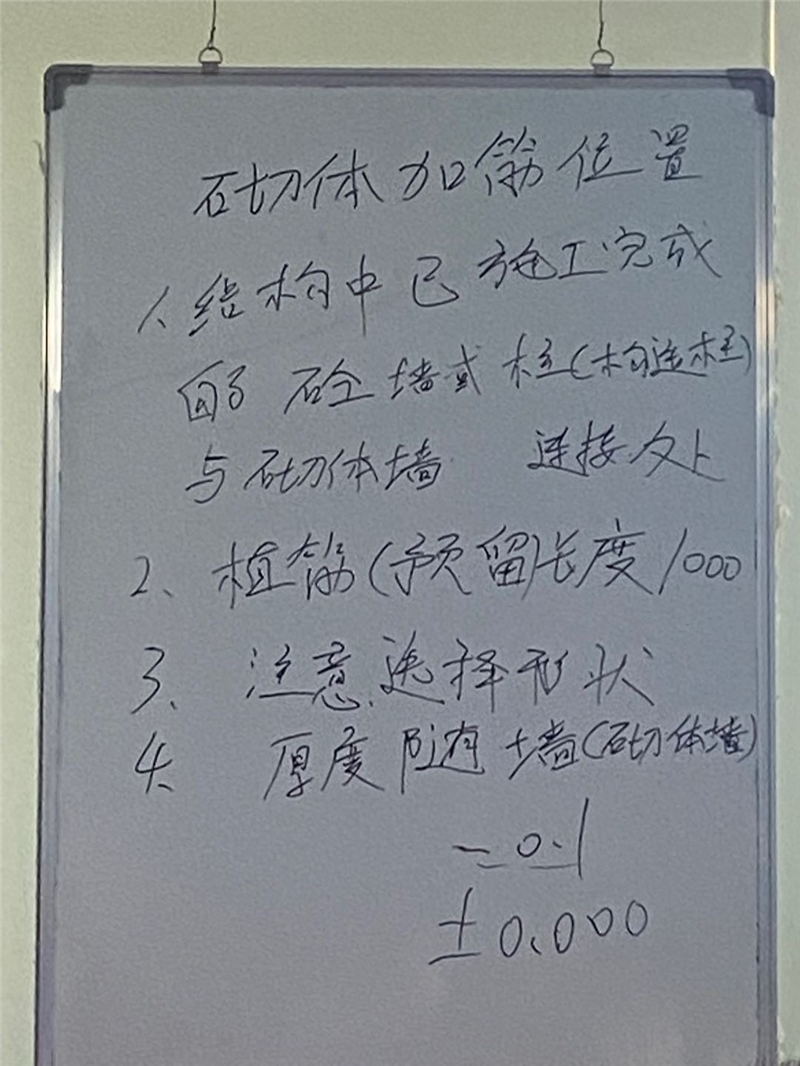 砌体加筋位置
1、结构中已施工完成
的砼墙或柱(构造柱)
与砌体墙 连接处
2、植筋(预留)长度1000
3、注意选择形状
4、厚度随墙(砌体墙)
-0.1
±0.000